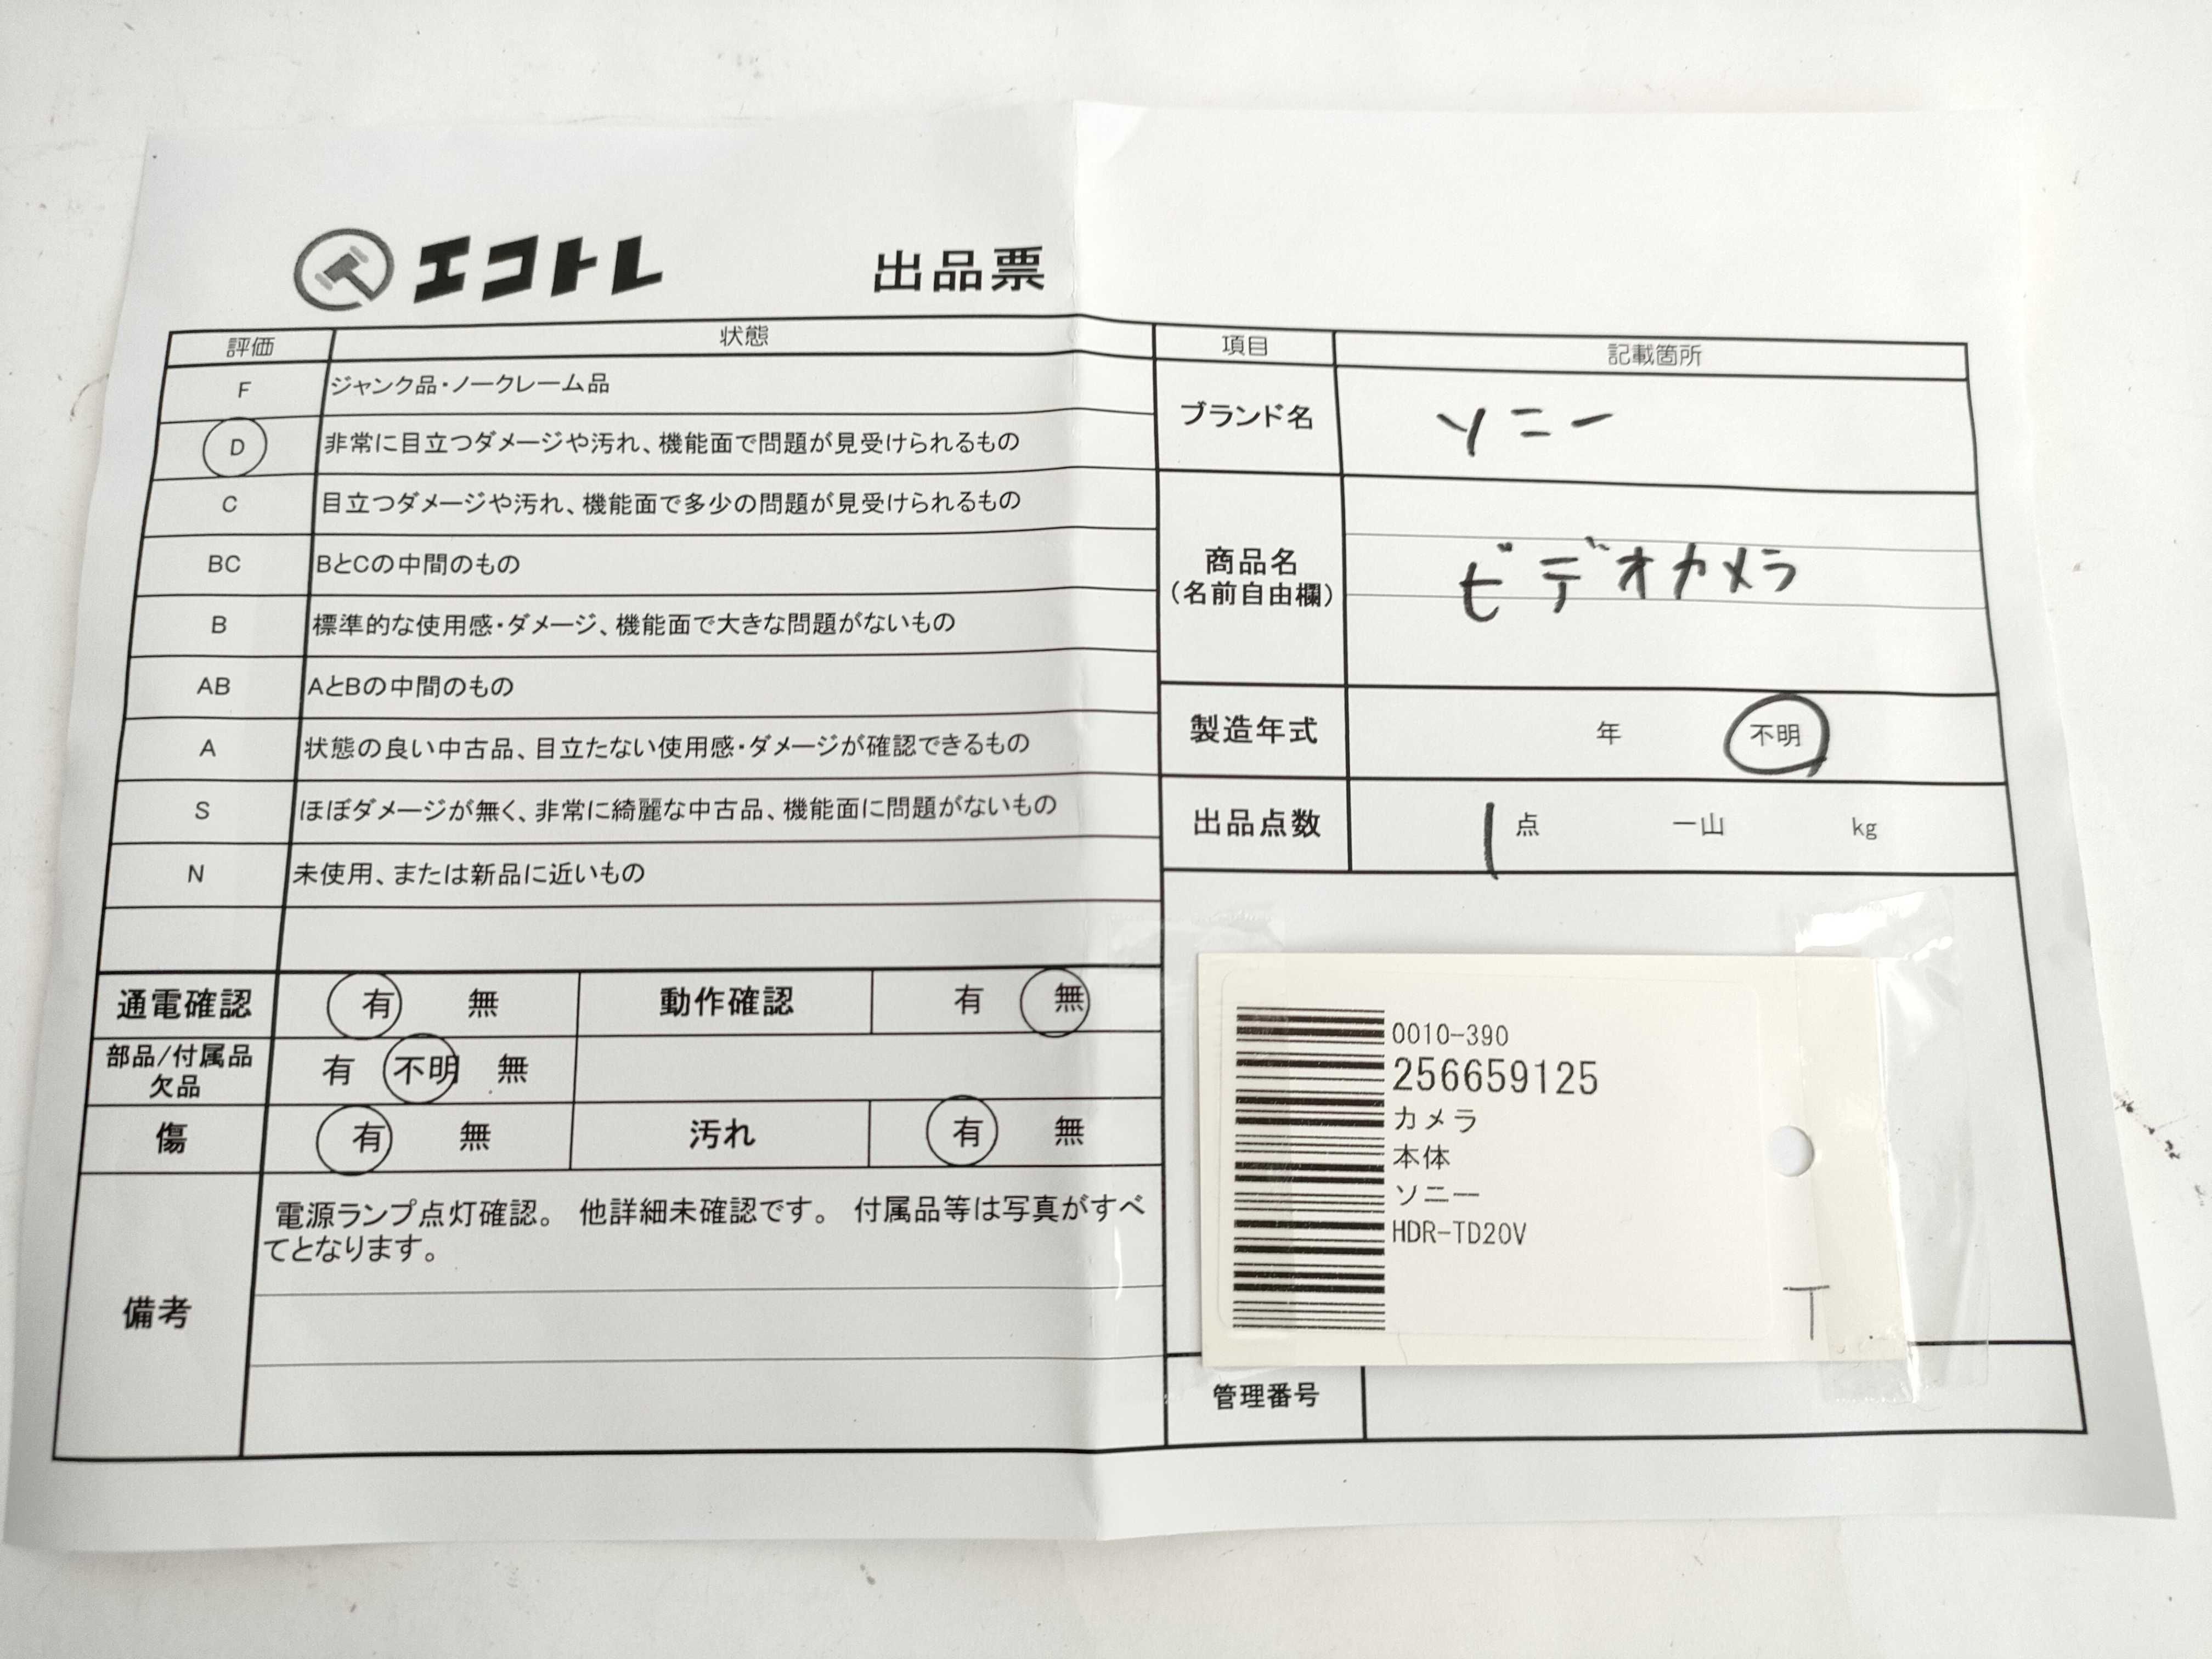 エコトレ 出品票
評価 状態
F ジャンク品・ノークレーム品
D 非常に目立つダメージや汚れ、機能面で問題が見受けられるもの
C 目立つダメージや汚れ、機能面で多少の問題が見受けられるもの
BC BとCの中間のもの
B 標準的な使用感・ダメージ、機能面で大きな問題がないもの
AB AとBの中間のもの
A 状態の良い中古品、目立たない使用感・ダメージが確認できるもの
S ほぼダメージが無く、非常に綺麗な中古品、機能面に問題がないもの
N 未使用、または新品に近いもの
通電確認 有 無 動作確認 有 無
部品/付属品
欠品 有 不明 無
傷 有 無 汚れ 有 無
備考
電源ランプ点灯確認。 他詳細未確認です。 付属品等は写真がすべ
てとなります。
項目 記載箇所
ブランド名 ソニー
商品名
(名前自由欄)
ビデオカメラ
製造年式 年 不明
出品点数 1 点 一山 kg
0010-390
256659125
カメラ
本体
ソニー
HDR-TD20V
T
管理番号